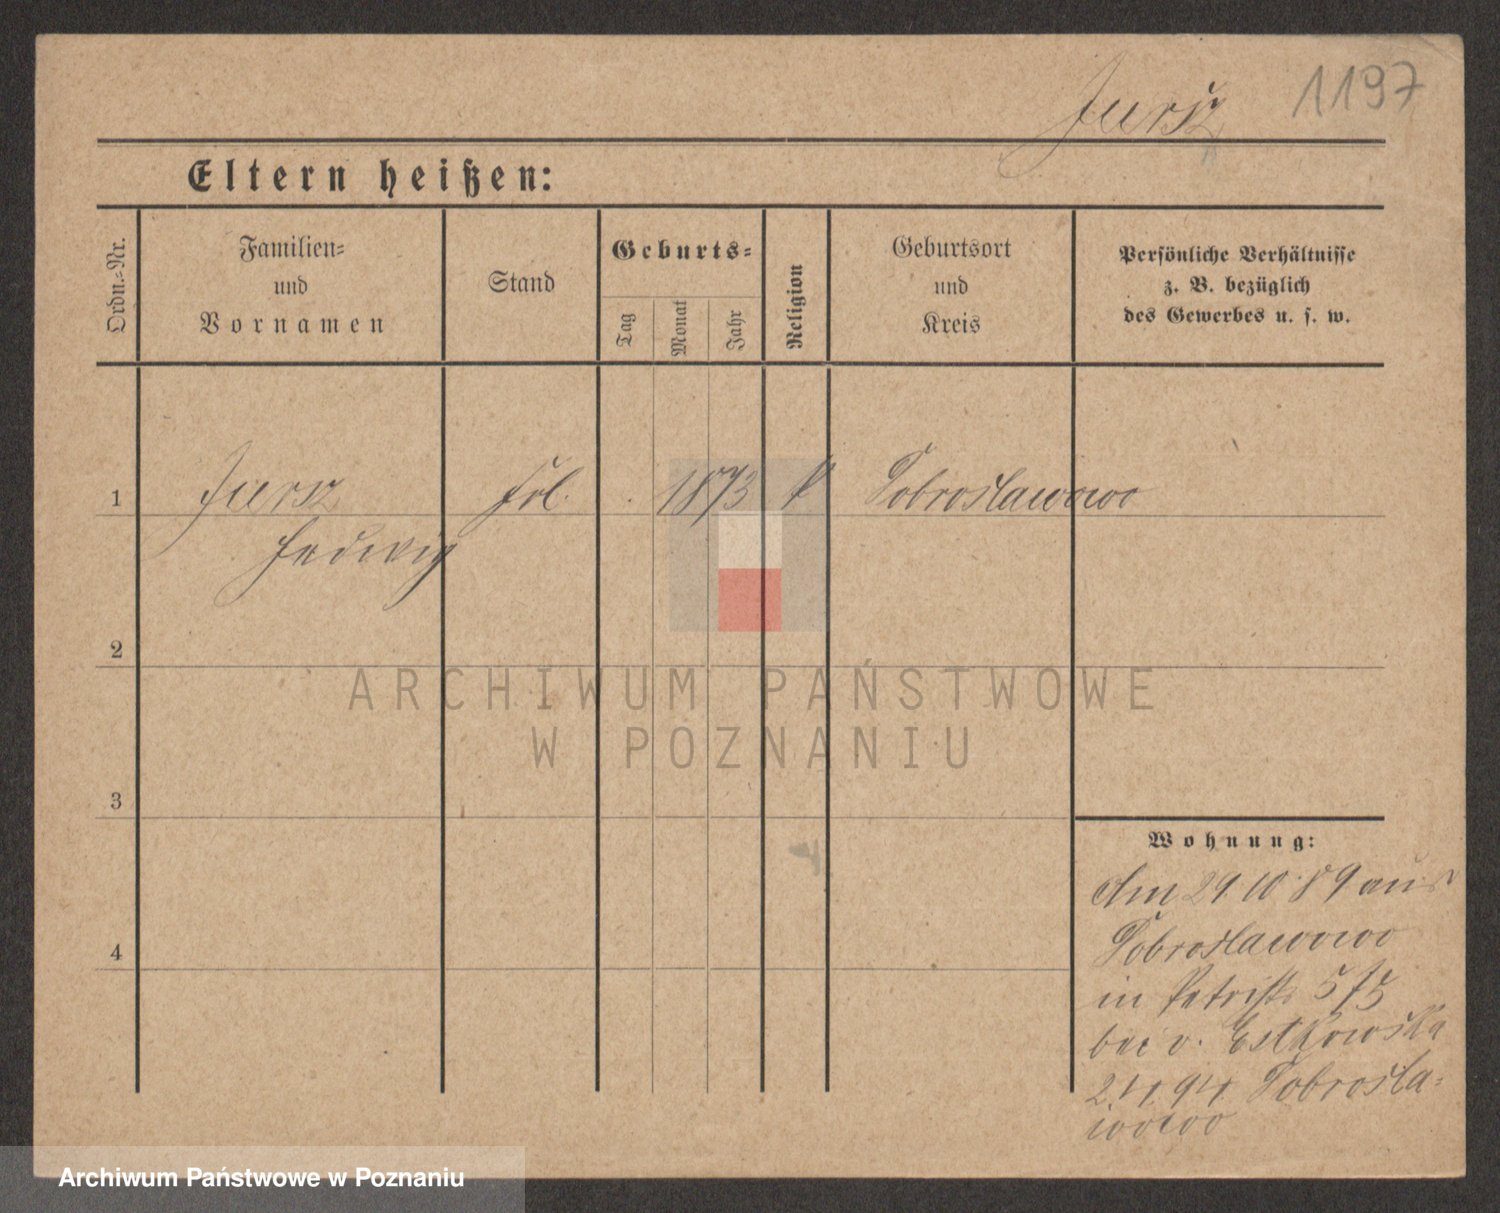 Jursz 1197
Eltern heißen:
Ordn.-Nr.
Familien-
und
Vornamen
Stand
Geburts-
Tag
Monat
Jahr
Religion
Geburtsort
und
Kreis
Persönliche Verhältnisse
z. B. bezüglich
des Gewerbes u. s. w.
1 Jursz Frl. 1873 k Dobrosławowo
Hedwig
2
ARCHIWUM PAŃSTWOWE
W POZNANIU
3
Wohnung:
Am 29 10 89 aus
Dobrosławowo
in Petristr 5/5
bei v. Estkowska
2.4.94 Dobrosła-
wowo
4
Archiwum Państwowe w Poznaniu